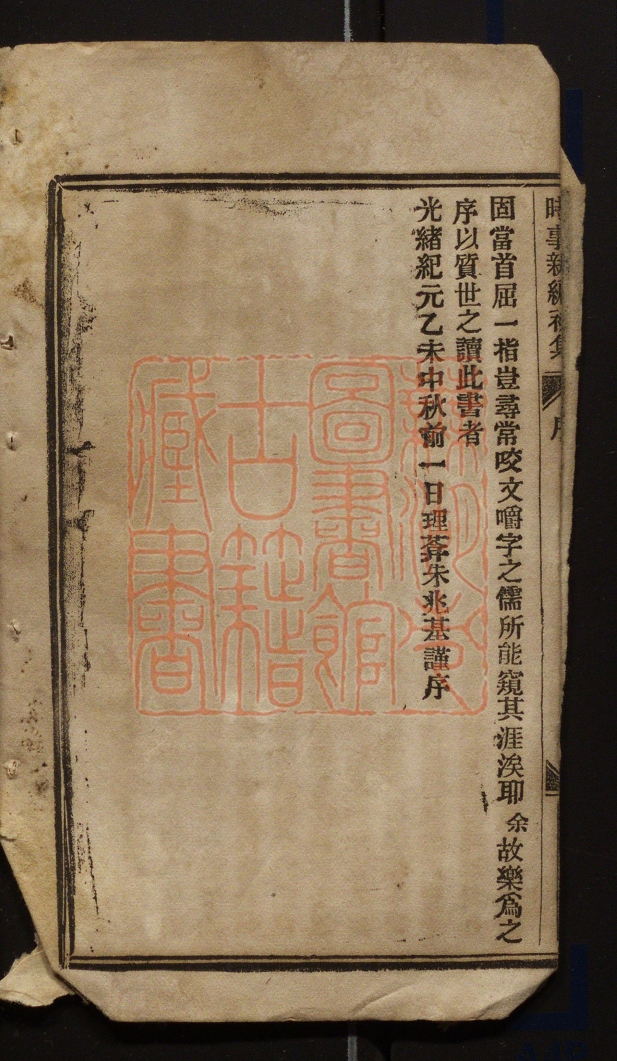 時事新編初集
序
固當首屈一指豈尋常咬文嚼字之儒所能窺其涯涘耶余故樂爲之
序以質世之讀此書者
光緒紀元乙未中秋前一日理菴朱兆基謹序
圖書館
古籍
藏書